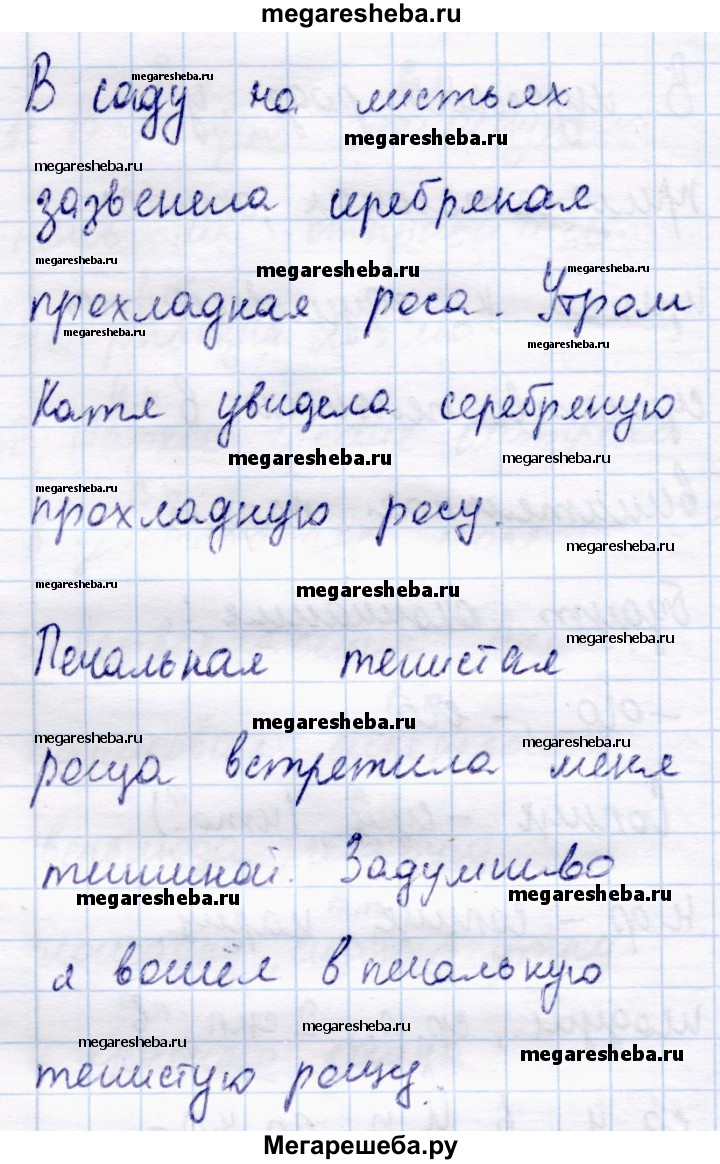 megaresheba.ru
megaresheba.ru
В саду на листьях
megaresheba.ru
megaresheba.ru
зазвенела серебряная
megaresheba.ru
megaresheba.ru
megaresheba.ru
прохладная роса. Утром
megaresheba.ru
megaresheba.ru
Катя увидела серебряную
megaresheba.ru
megaresheba.ru
megaresheba.ru
прохладную росу.
megaresheba.ru
megaresheba.ru
megaresheba.ru
Печальная тенистая
megaresheba.ru
megaresheba.ru
megaresheba.ru
megaresheba.ru
роща встретила меня
тишиной. Задумчиво
megaresheba.ru
megaresheba.ru
я вошёл в печальную
megaresheba.ru
megaresheba.ru
megaresheba.ru
тенистую рощу.
Мегарешеба.ру